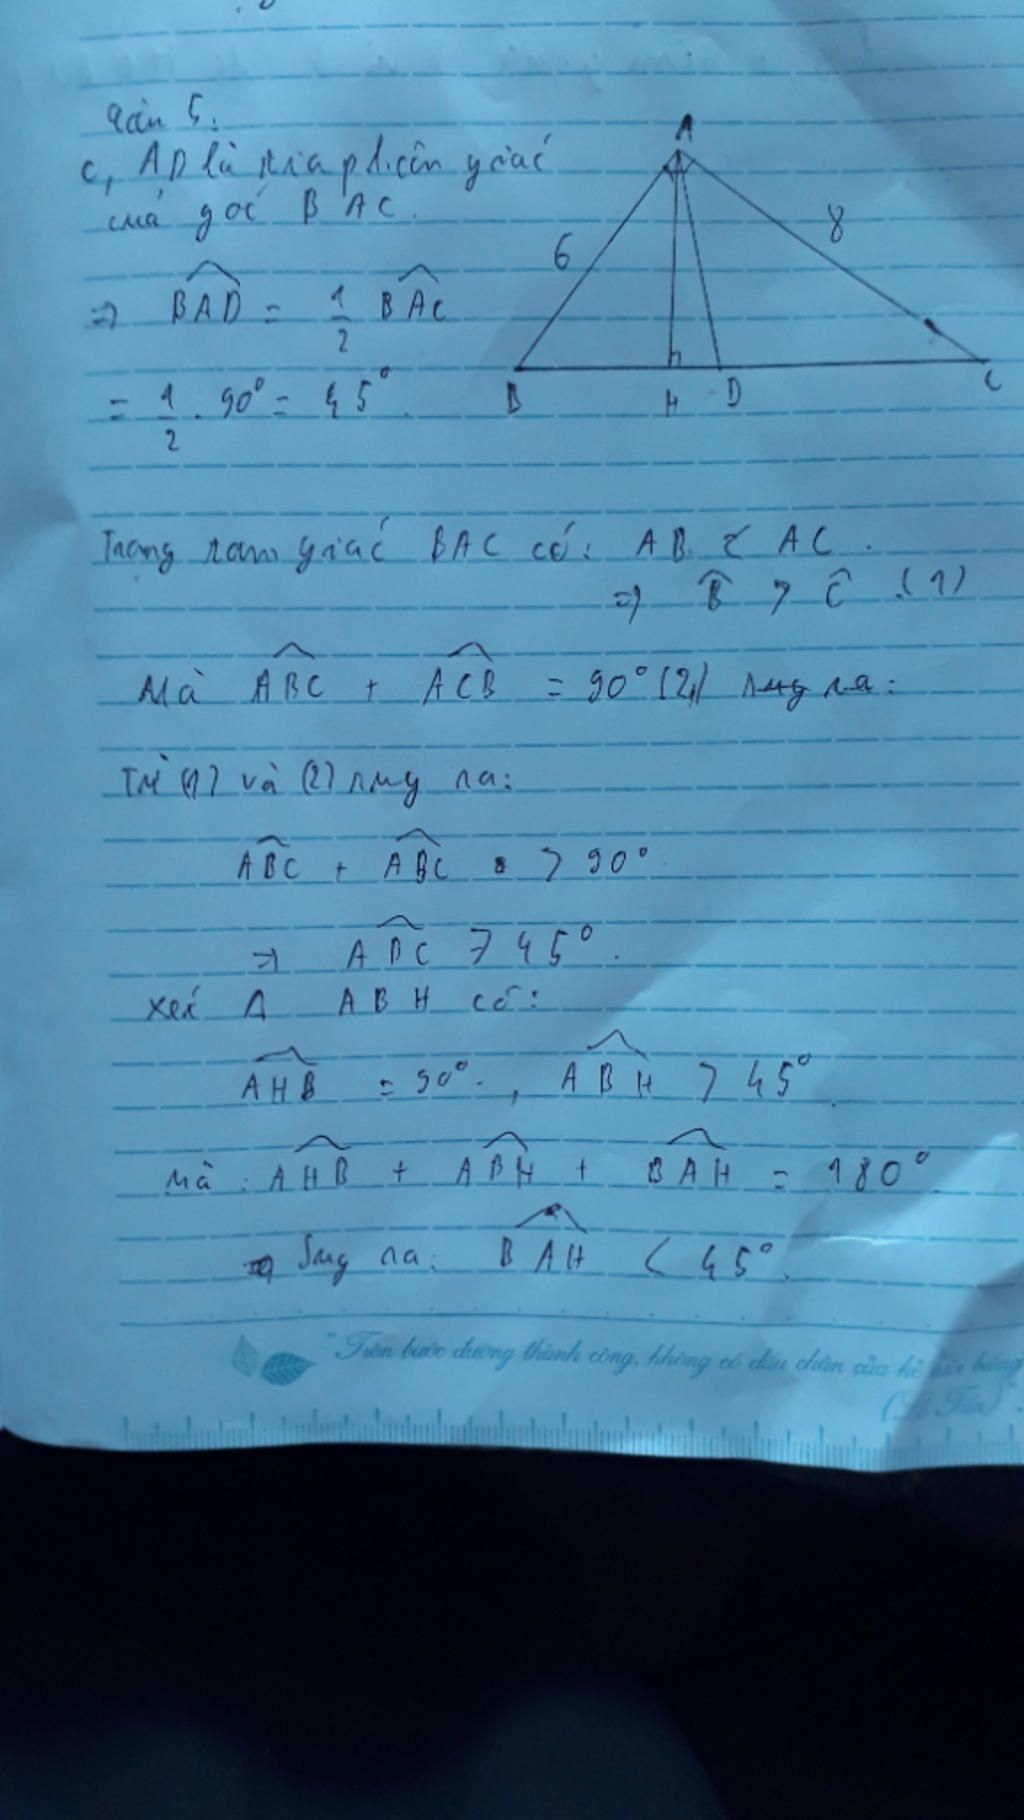 c, AD là tia phân giác
của góc BAC.
A
6
8
B
H
D
C
⇒ BAD = 1/2 BAC
= 1/2 . 90° = 45°.
Trong tam giác BAC có: AB < AC.
⇒ B > C (1)
Mà ABC + ACB = 90° (2) suy ra:
Từ (1) và (2) suy ra:
ABC + ABC > 90°
⇒ ABC > 45°.
Xét Δ ABH có:
AHB = 90°, ABH > 45°
Mà: AHB + ABH + BAH = 180°
Suy ra: BAH < 45°.
"Trên bước đường thành công, không có dấu chân của kẻ lười biếng